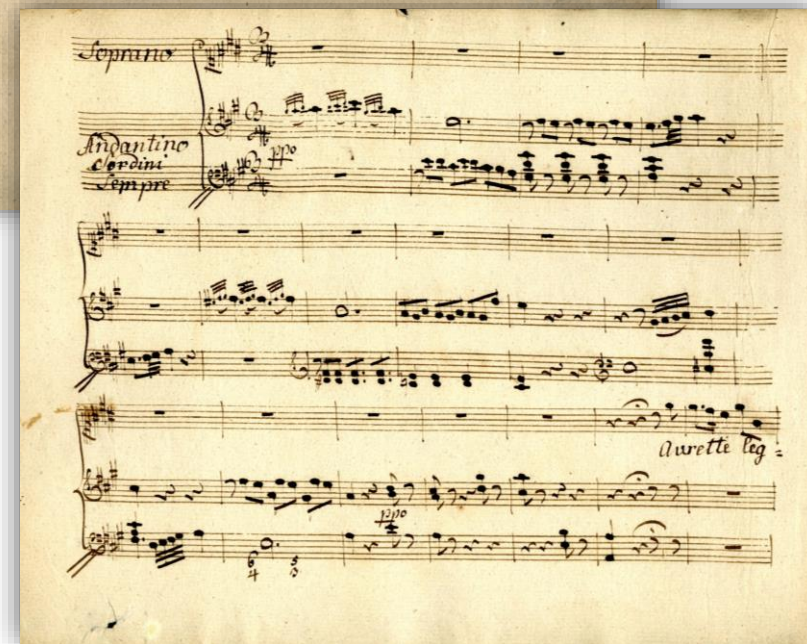 Soprano
Andantino
Sordini
Sempre
ppo
Aurette leg =
ppo
6 5
4 3